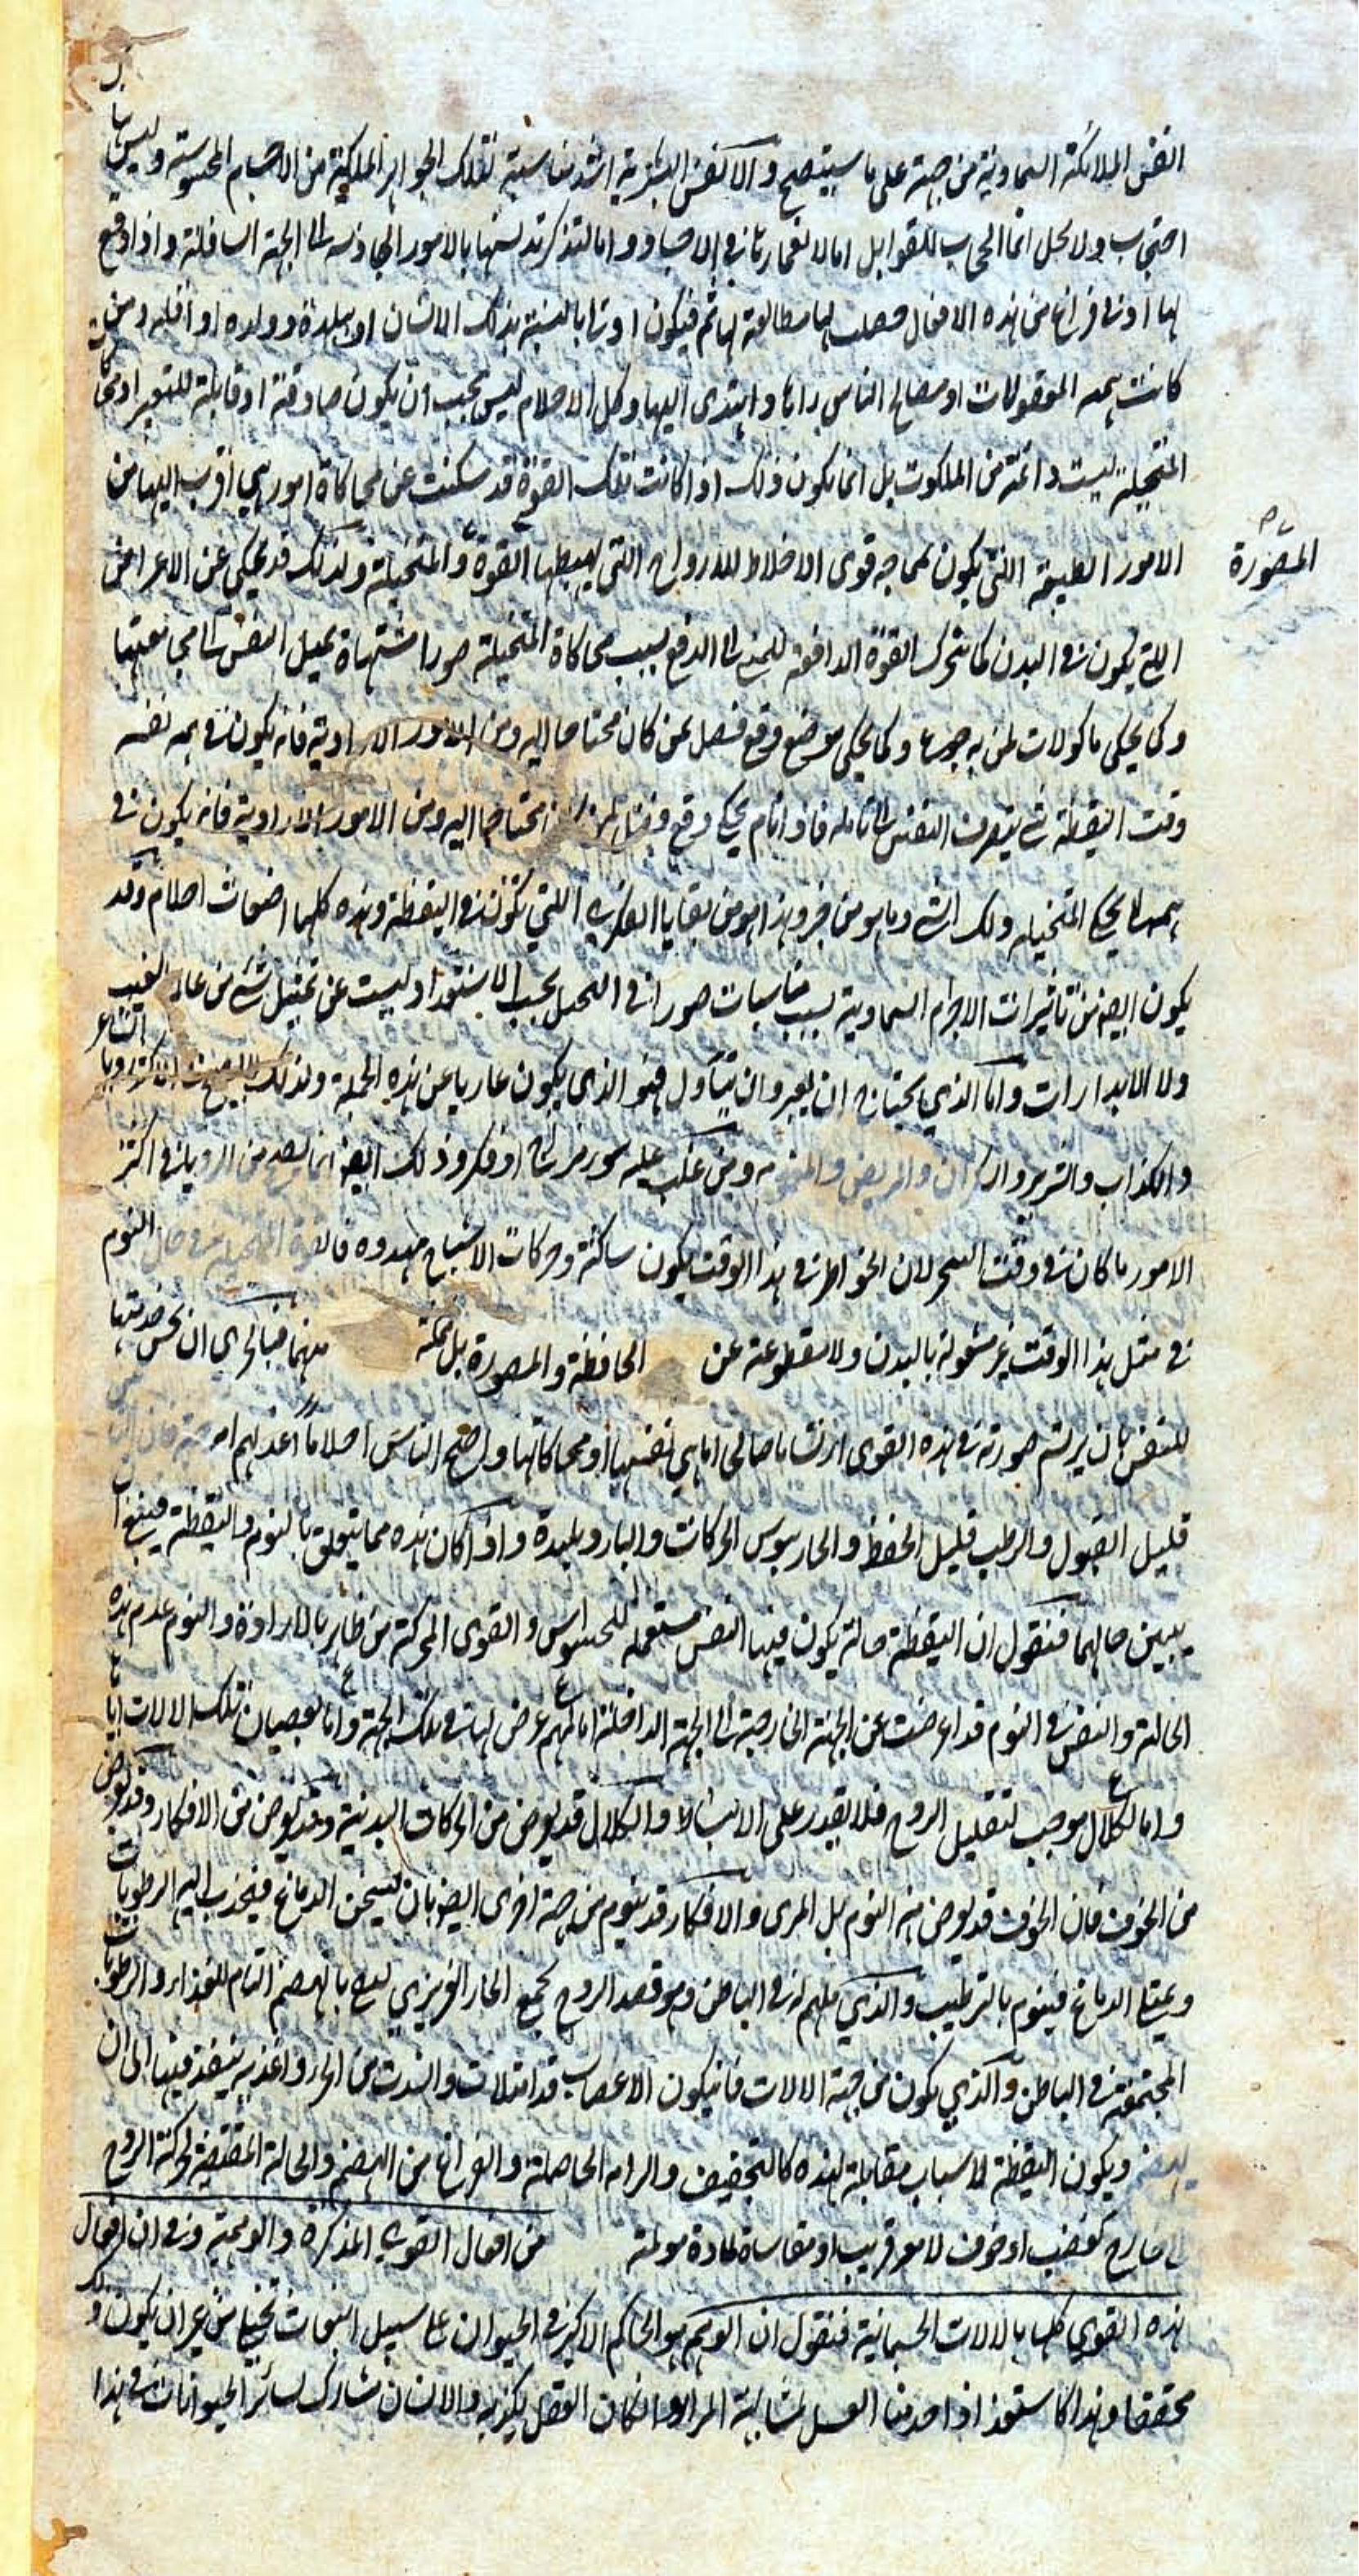 انفس الملائكة السماوية من جهة على ما سيتضح والانفس البشرية اشد مناسبة لتلك الجواهر الملكية من الاجسام المحسوسة وليس هناك
احتجاب ولا بخل انما الحجاب للقوابل اما لانغمارها في الاجساد واما لتدنسها بالامور الجاذبة الى الجهة السافلة واذا وقع
لها ادنى فراغ من هذه الافعال حصلت لها مطالعة لما ثم فيكون اولى بالنسبة بذلك الانسان او ببلده وولده او اقليمه ومن
كانت همه المعقولات او مصالح الناس راها واهتدى اليها وكل الاحلام ليس يجب ان يكون صادقة او قابلة للتعبير او محاكات
المتخيلة ليست دائمة من الملكوت بل انما يكون ذلك اذا كانت تلك القوة قد سكنت عن محاكاة امور هي اقرب اليها من
الامور الطبيعة التي يكون لممازجة قوى الاخلاط للارواح التي يمتطيها القوة والمتخيلة ولذلك قد يحكي عن الاعراض
المصورة
التي يكون في البدن كما يتحرك القوة الدافعة للمني الى الدفع بسبب محاكاة المتخيلة صورا مشتهاة يميل النفس الى مجامعتها
وكما يحكي ماكولات لمن به جوع وكما يحكي موضع وقع فضل لمن كان محتاجا اليه ومن الامور الارادية فانه يكون في همه نفسه
وقت اليقظة شي يتصرف النفس الى تامله فاذا نام يحكي وقع وفضل لمن محتاجا اليه ومن الامور الارادية فانه يكون في
همه ما يحكي المتخيلة ذلك الشي وما هو من وهذا هو من بقايا الفكر التي تكون في اليقظة وهذه كلها اضغاث احلام وقد
يكون ايضا من تاثيرات الاجرام السماوية بسبب مناسبات صورا في التخيل بحسب الاستعداد ليست عن تمثيل شي من عالم الغيب
ولا الانذارات واما الذي يحتاج ان يعبر وان يتأول فهو الذي يكون عاريا عن هذه الجملة ولذلك لا يصح في الاكثر رويا الشاعر
والكذاب والشرير والسكران والمريض والمغموم ومن غلب عليه سوء مزاج او فكر وذلك ايضا انما يصح من الرويا في اكثر
الامور ما كان في وقت السحر لان الخواطر في هذا الوقت يكون ساكنة وحركات الاشباح مهدوه فالقوة المتخيلة في حال النوم
في مثل هذا الوقت غير مشغولة بالبدن ولا مقطوعة عن الحافظة والمصورة بل متمكنة منهما فبالحري ان يحسن خدمتها
للنفس بان يرتسم صورته في هذه القوى ارتساما صالحا اما هي نفسها او محاكاتها واصح الناس احلاما اعدلهم
قليل القبول والرطب قليل الحفظ والحار يسوس الحركات والبارد بليدة واذا كان هذه مما يتعلق بالنوم واليقظة فينبغي ان
يبين حالهما فنقول ان اليقظة حالة يكون فيها النفس مستعملة للحواس والقوى المحركة من ظاهر بالارادة والنوم عدم هذه
الحالة والنفس في النوم قد اعرضت عن الجهة الخارجة الى الجهة الداخلة اما لمهم عرض لها في تلك الجهة واما لعصيان تلك الالات اياها
واما لكلال موجب لتقليل الروح فلا يقدر على الانبساط والكلال قد يعرض من الحركات البدنية وقد يعرض من الافكار وقد يعرض
من الخوف فان الخوف قد يعرض منه النوم بل الموت والافكار قد ينوم من جهة اخرى ايضا بان تسخن الدماغ فينجذب اليه الرطوبات
ويمتلي الدماغ فينوم بالترطيب والذي لمهم له في الباطن وهو قصد الروح لجمع الحار الغريزي ليفي بالهضم التام للغذاء والرطوبات
المجتمعة في الباطن والذي يكون من جهة الالات فان يكون الاعصاب قد امتلات وانسدت من ابخرة واغذية ينفذ فيها الى ان
ينهضم ويكون اليقظة لاسباب مقابلة لهذه كالتجفيف والراحة الحاصلة والفراغ من الهضم والحالة المقتضية لحركة الروح
الى خارج كغضب او خوف لامر قريب او مقاساة لمادة مولمة من افعال القوى المذكرة والوهمية وفي ان افعال
هذه القوى كلها بالالات الجسمانية فنقول ان الوهم هو الحاكم الاكبر في الحيوان على سبيل انبعاث تخيلي من غير ان يكون ذلك
محققا وهذا كاستقذار احدنا العسل لمشابهته المرار وان كان العقل يكذبه والانسان مشارك لسائر الحيوانات في هذا